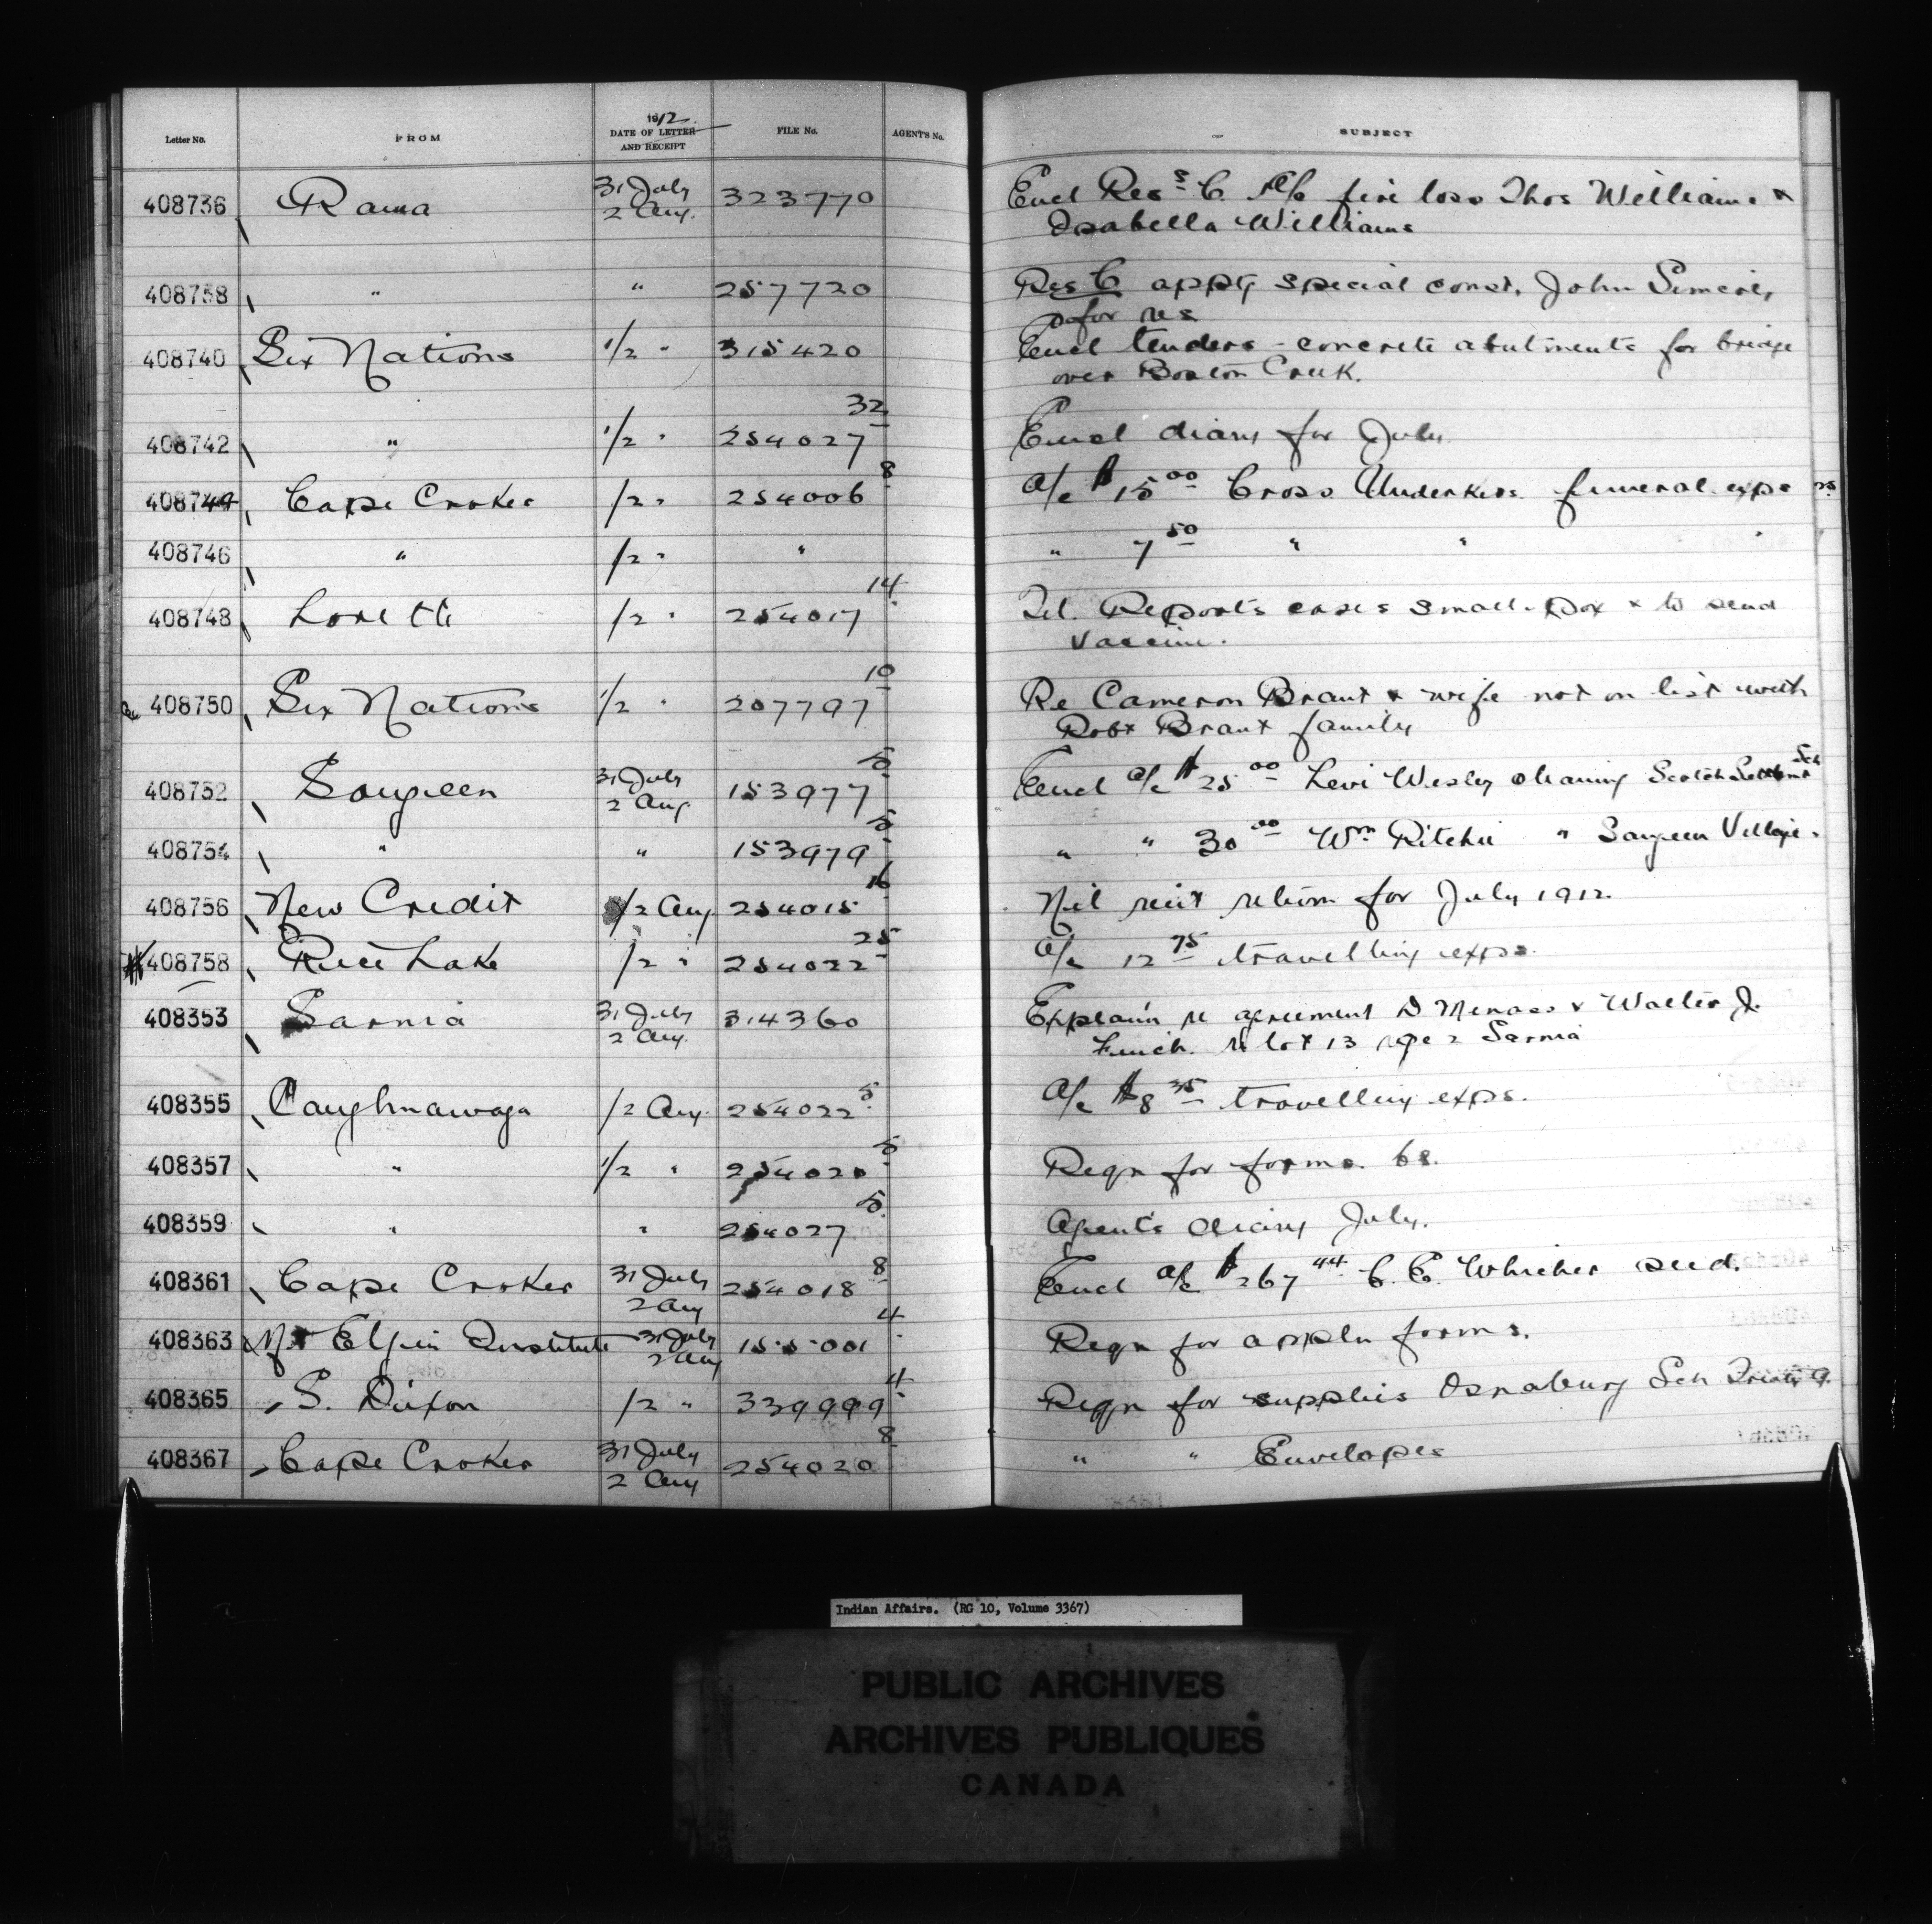 Letter No. FROM 1912 DATE OF LETTER AND RECEIPT FILE No. AGENT'S No. SUBJECT
408736 Rama 31 July 2 Aug. 323770 Encl Res C. fire loss Thos Williams &
Isabella Williams
408738 " " 257720 Res C apptg special const. John Simcoe,
for res
408740 Six Nations 1/2 " 315420 Encl tenders - concrete abutments for bridge
over Boston Creek.
408742 " 1/2 " 254027 32 Encl diary for July.
408744 Cape Croker 1/2 " 254006 8 A/c $15 00 Cross funeral exps
408746 " 1/2 " " " 7 50 " "
408748 Lorette 1/2 " 254017 14 Tel. Reports cases small-pox & to send
vaccine.
408750 Six Nations 1/2 " 207797 10 Re Cameron Brant & wife not on list with
Robt Brant family
408752 Saugeen 31 July 2 Aug. 153977 5 Encl a/c $25 00 Levi Wesley cleaning Scotch Settlemt Sch
408754 " " 153979 5 " " 30 00 Wm Ritchie " Saugeen Village "
408756 New Credit 1/2 Aug 254015 16 Nil rect return for July 1912.
408758 Rice Lake 1/2 " 254022 25 A/c 12 75 travelling exps.
408353 Sarnia 31 July 2 Aug. 314360 Explain re agreement D Menass & Walter J.
re lot 13 rge 2 Sarnia
408355 Caughnawaga 1/2 Aug. 254022 5 A/c $8 35 travelling exps.
408357 " 1/2 " 254020 5 Reqn for forms. 68.
408359 " " 254027 5 Agent's diary July.
408361 Cape Croker 31 July 2 Aug 254018 8 Encl a/c $267 44 C. E. Whicher seed.
408363 Mt Elgin Institute 31 July 2 Aug 155001 4 Reqn for appln forms.
408365 S. Dixon 1/2 " 339999 4 Reqn for supplies Osnaburg Sch Treaty 9.
408367 Cape Croker 31 July 2 Aug 254020 8 " " Envelopes
Indian Affairs. (RG 10, Volume 3367)
PUBLIC ARCHIVES
ARCHIVES PUBLIQUES
CANADA